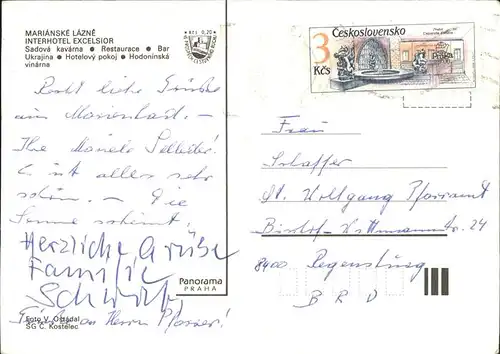 MARIÁNSKÉ LÁZNĚ
INTERHOTEL EXCELSIOR
Sadová kavárna ● Restaurace ● Bar
Ukrajina ● Hotelový pokoj ● Hodonínská
vinárna
Recht liebe Grüße
aus Marienbad. –
Ihre
Es ist alles sehr
schön. – Die
Sonne scheint.
Herzliche Grüße
Familie
an Herrn Pfarrer!
Foto V. Ošťádal
SG C. Kostelec
Panorama
PRAHA
3 Kčs
Československo
Frau
Schaffer
St. Wolfgang Pfarramt
Bischof-Wittmann Str. 24
8400 Regensburg
B R D